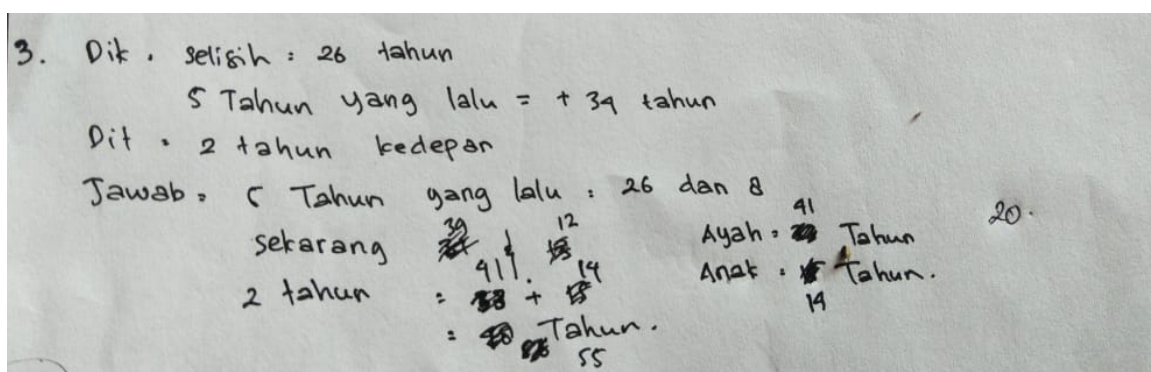 3. Dik . selisih = 26 tahun
5 Tahun yang lalu = + 34 tahun
Dit . 2 tahun kedepan
Jawab = 5 Tahun yang lalu : 26 dan 8
sekarang 39 12
2 tahun = 41 + 14
= Tahun . 55
Ayah = 41 Tahun
Anak = 14 Tahun.
20.